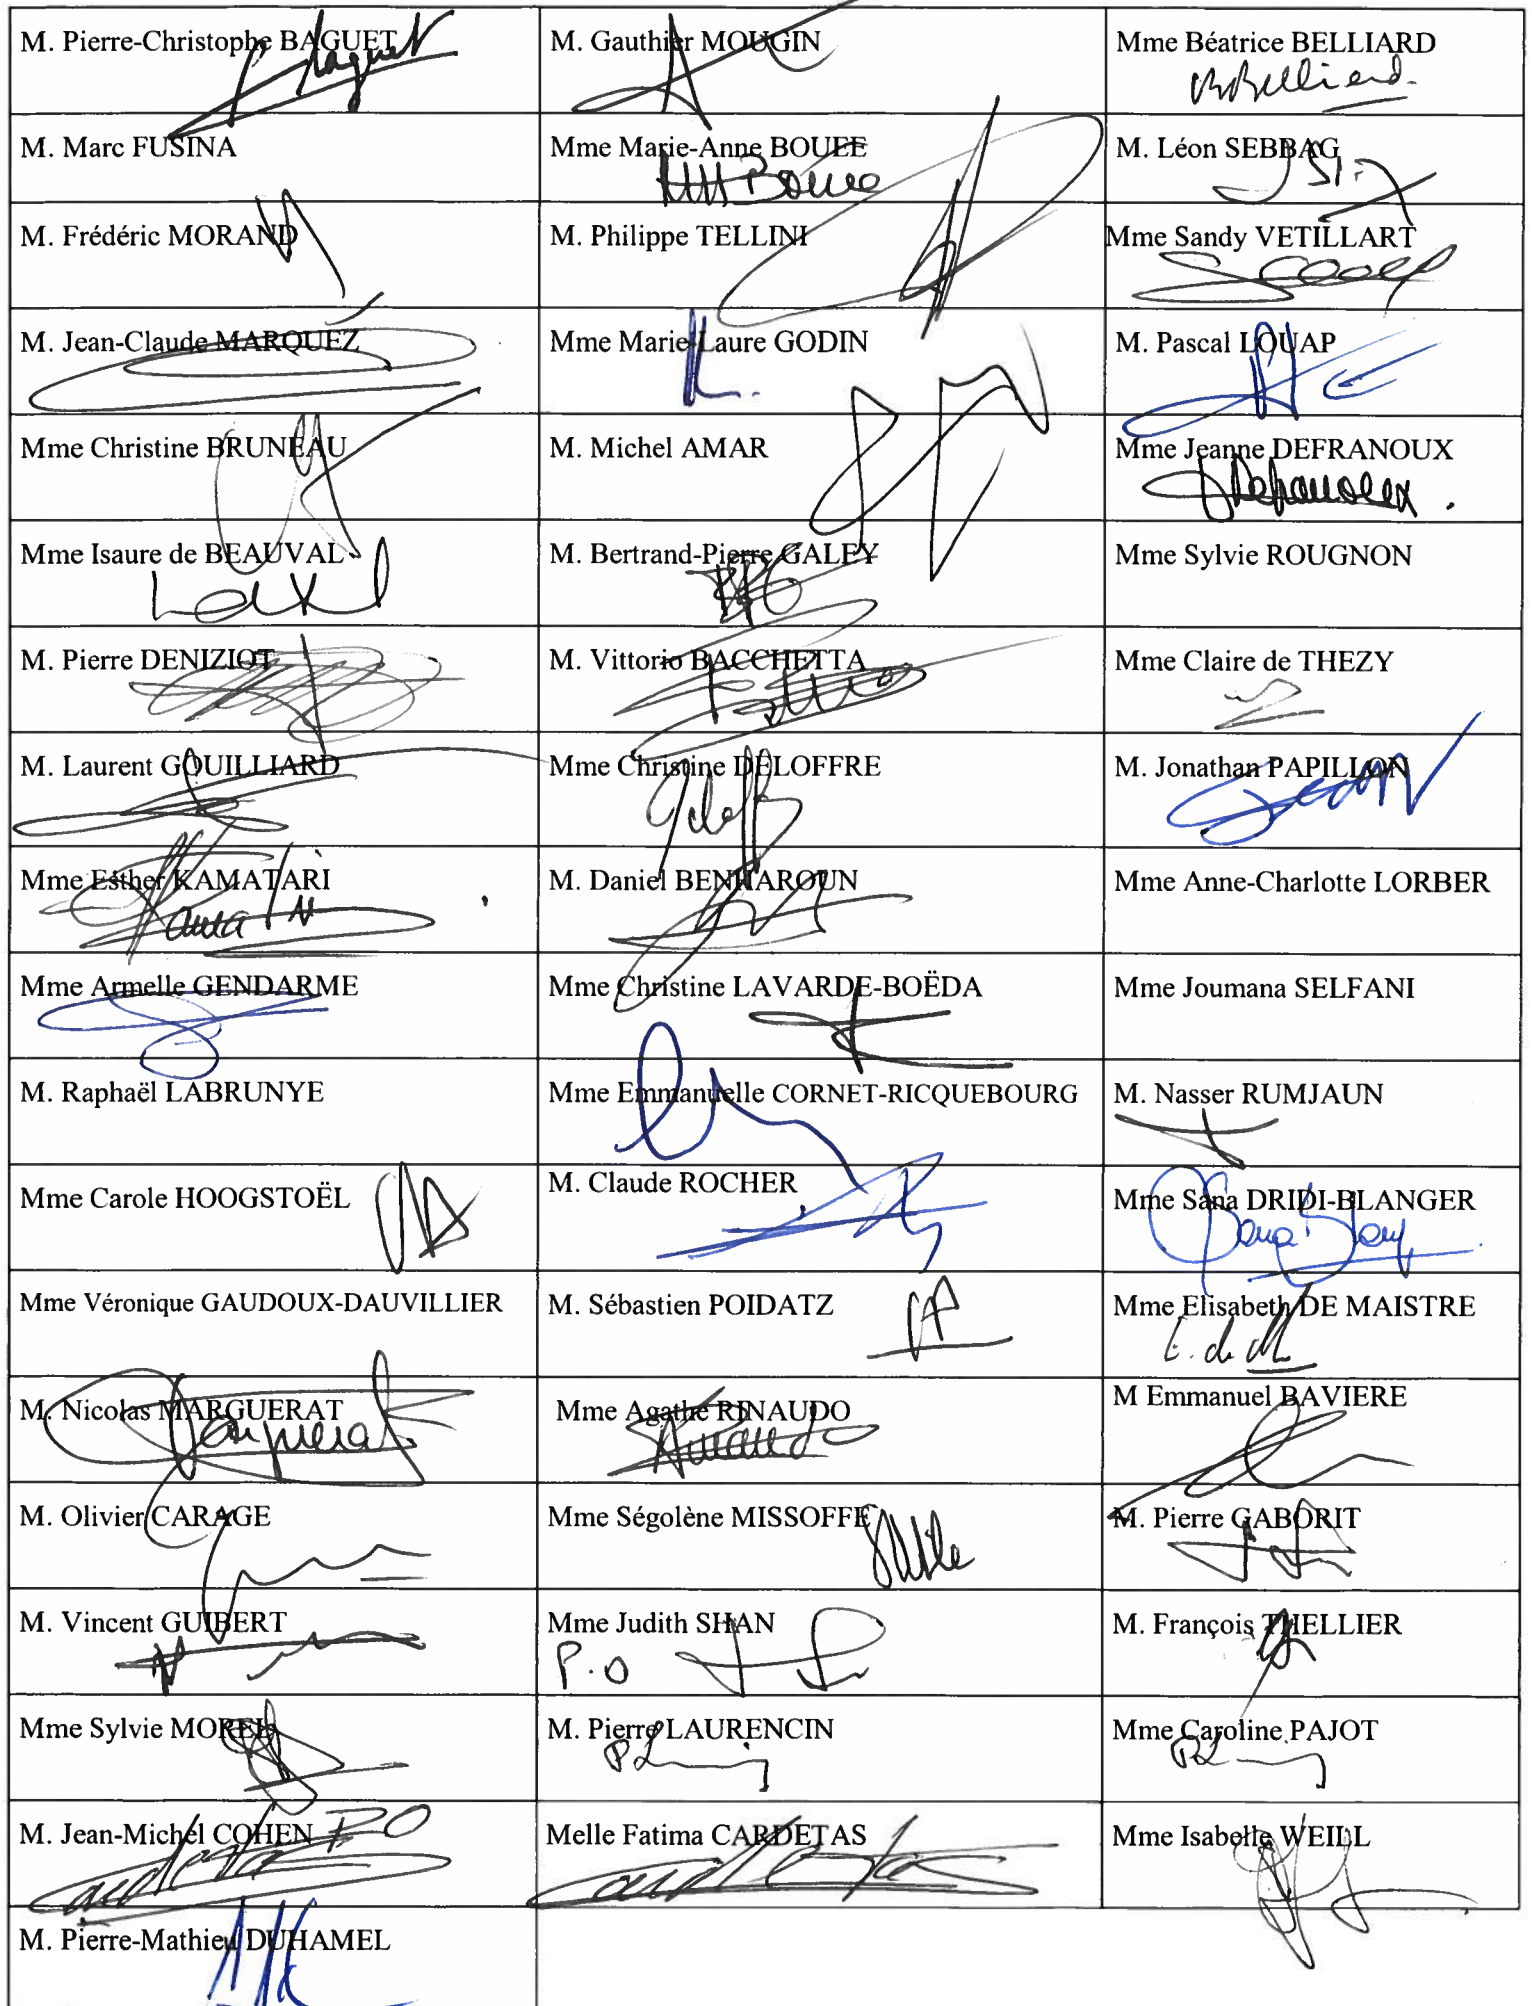 M. Pierre-Christophe BAGUET
M. Gauthier MOUGIN
Mme Béatrice BELLIARD
M. Marc FUSINA
Mme Marie-Anne BOUEE
M. Léon SEBBAG
M. Frédéric MORAND
M. Philippe TELLINI
Mme Sandy VETILLART
M. Jean-Claude MARQUEZ
Mme Marie-Laure GODIN
M. Pascal LOUAP
Mme Christine BRUNEAU
M. Michel AMAR
Mme Jeanne DEFRANOUX
Mme Isaure de BEAUVAL
M. Bertrand-Pierre GALEY
Mme Sylvie ROUGNON
M. Pierre DENIZIOT
M. Vittorio BACCHETTA
Mme Claire de THEZY
M. Laurent GOUILLIARD
Mme Christine DELOFFRE
M. Jonathan PAPILLON
Mme Esther KAMATARI
M. Daniel BENHAROUN
Mme Anne-Charlotte LORBER
Mme Armelle GENDARME
Mme Christine LAVARDE-BOËDA
Mme Joumana SELFANI
M. Raphaël LABRUNYE
Mme Emmanuelle CORNET-RICQUEBOURG
M. Nasser RUMJAUN
Mme Carole HOOGSTOËL
M. Claude ROCHER
Mme Sana DRIDI-BLANGER
Mme Véronique GAUDOUX-DAUVILLIER
M. Sébastien POIDATZ
Mme Elisabeth DE MAISTRE
M. Nicolas MARGUERAT
Mme Agathe RINAUDO
M Emmanuel BAVIERE
M. Olivier CARAGE
Mme Ségolène MISSOFFE
M. Pierre GABORIT
M. Vincent GUIBERT
Mme Judith SHAN
P.O
M. François THELLIER
Mme Sylvie MOREL
M. Pierre LAURENCIN
Mme Caroline PAJOT
M. Jean-Michel COHEN PO
Melle Fatima CARDETAS
Mme Isabelle WEILL
M. Pierre-Mathieu DUHAMEL